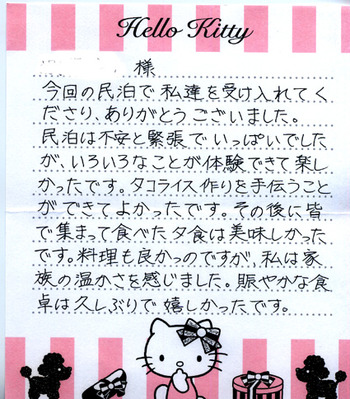 Hello Kitty
様
今回の民泊で私達を受け入れてく
ださり、ありがとうございました。
民泊は不安と緊張でいっぱいでした
が、いろいろなことが体験できて楽し
かったです。タコライス作りを手伝うこと
ができてよかったです。その後に皆
で集まって食べた夕食は美味しかった
です。料理も良かったのですが、私は家
族の温かさを感じました。賑やかな食
卓は久しぶりで嬉しかったです。